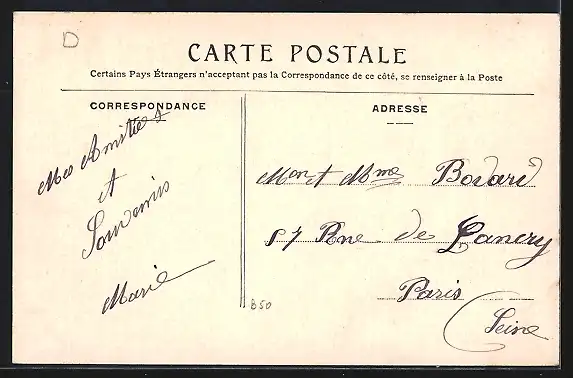 D
CARTE POSTALE
Certains Pays Étrangers n'acceptant pas la Correspondance de ce côté, se renseigner à la Poste
CORRESPONDANCE
ADRESSE
Mes Amitiés
et
Souvenirs
Marie
Mon et Mme
57 Rue de Lancry
Paris
Seine
B50